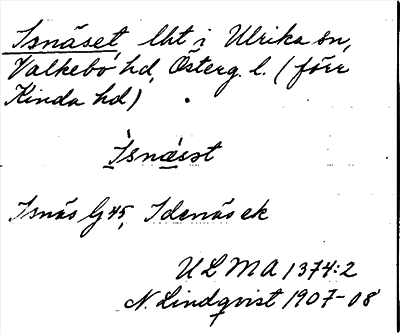 Isnäset, lht i Ulrika sn,
Valkebo hd, Österg. l. (förr
Kinda hd)
Ìsnæ̀sət
Isnäs G 45, Idenäs ek
ULMA 1374:2
N. Lindqvist 1907-08